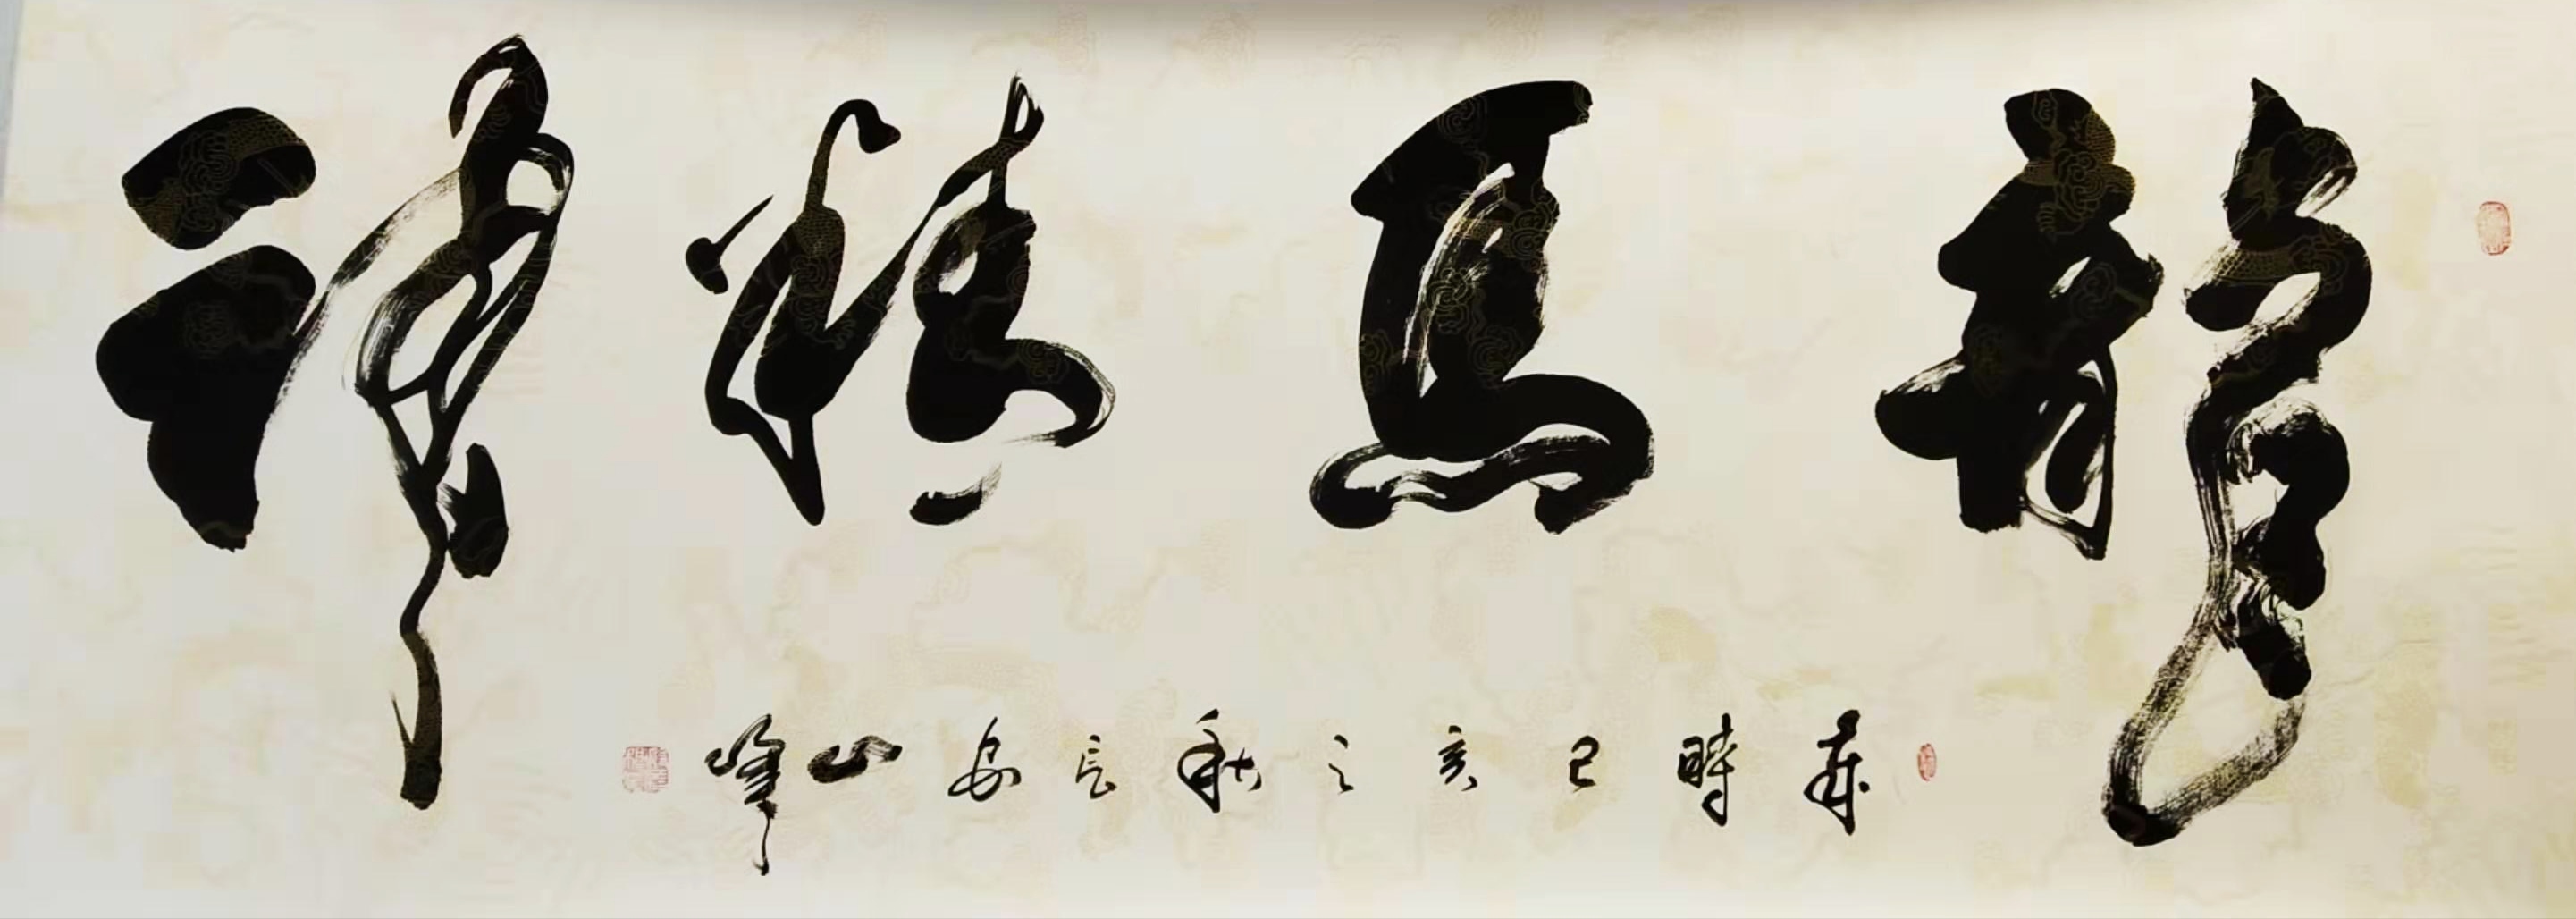 龍馬精神
歲時己亥之秋長安山峰